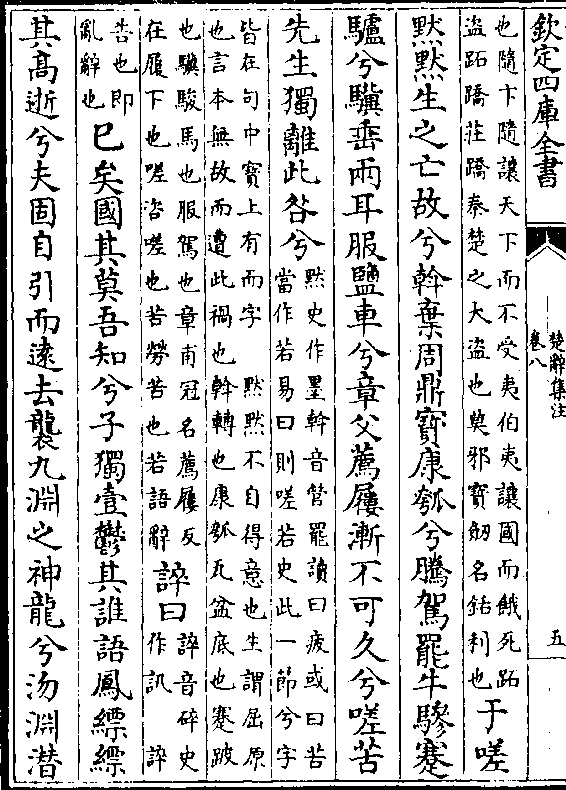 欽定四庫全書
楚辭集注
卷八
五
也隨卞隨讓天下而不受夷伯夷讓國而餓死跖
盜跖蹻莊蹻秦楚之大盜也莫邪寶劒名銛利也
于嗟
黙黙生之亡故兮斡棄周鼎寶康瓠兮騰駕罷牛驂蹇
驢兮驥垂兩耳服鹽車兮章父薦屨漸不可久兮嗟苦
先生獨離此咎兮
黙史作墨斡音管罷讀曰疲或曰苦
當作若易曰則嗟若史此一節兮字
皆在句中寶上有而字　黙黙不自得意也生謂屈原
也言本無故而遭此禍也斡轉也康瓠瓦盆底也蹇跛
也驥駿馬也服駕也章甫冠名薦屨反
在履下也嗟咨嗟也苦勞苦也若語辭
誶曰
誶音碎史
作訊　誶
告也即
亂辭也
巳矣國其莫吾知兮子獨壹鬱其誰語鳳縹縹
其髙逝兮夫固自引而逺去襲九淵之神龍兮沕淵潛